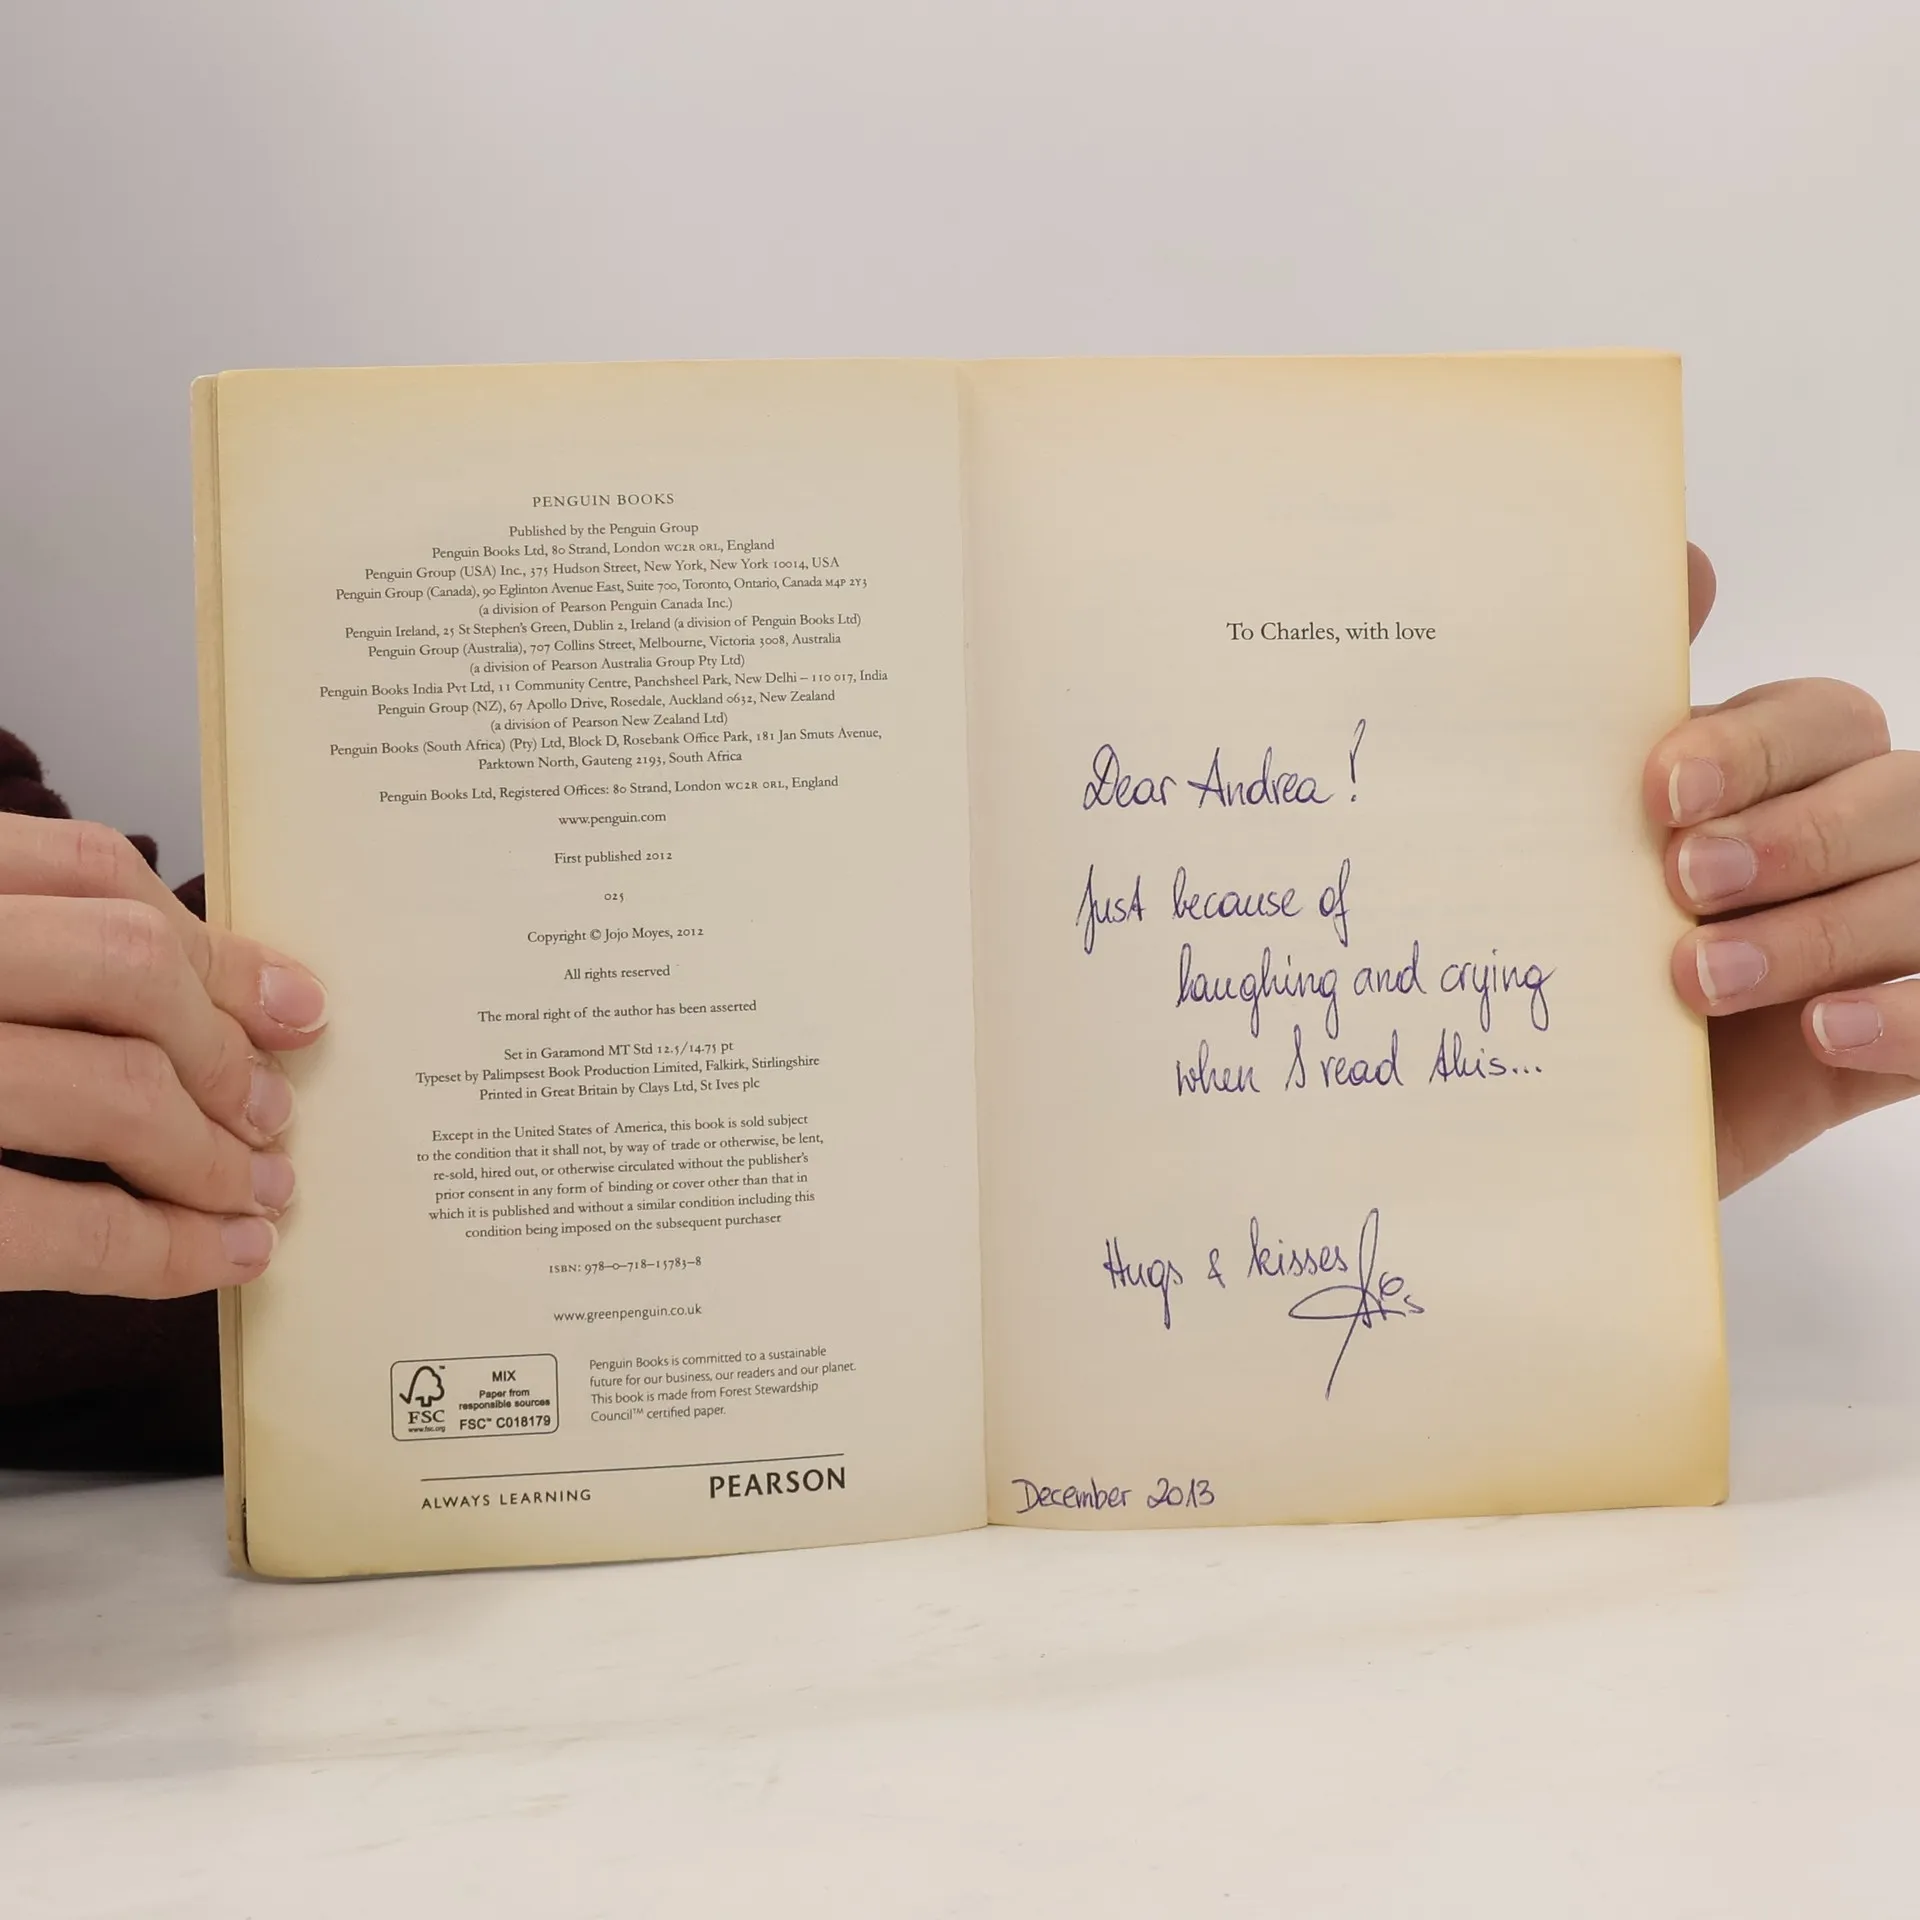 PENGUIN BOOKS
Published by the Penguin Group
Penguin Books Ltd, 80 Strand, London WC2R ORL, England
Penguin Group (USA) Inc., 375 Hudson Street, New York, New York 10014, USA
Penguin Group (Canada), 90 Eglinton Avenue East, Suite 700, Toronto, Ontario, Canada M4P 2Y3
(a division of Pearson Penguin Canada Inc.)
Penguin Ireland, 25 St Stephen's Green, Dublin 2, Ireland (a division of Penguin Books Ltd)
Penguin Group (Australia), 707 Collins Street, Melbourne, Victoria 3008, Australia
(a division of Pearson Australia Group Pty Ltd)
Penguin Books India Pvt Ltd, 11 Community Centre, Panchsheel Park, New Delhi – 110 017, India
Penguin Group (NZ), 67 Apollo Drive, Rosedale, Auckland 0632, New Zealand
(a division of Pearson New Zealand Ltd)
Penguin Books (South Africa) (Pty) Ltd, Block D, Rosebank Office Park, 181 Jan Smuts Avenue,
Parktown North, Gauteng 2193, South Africa
Penguin Books Ltd, Registered Offices: 80 Strand, London WC2R ORL, England
www.penguin.com
First published 2012
025
Copyright © Jojo Moyes, 2012
All rights reserved
The moral right of the author has been asserted
Set in Garamond MT Std 12.5/14.75 pt
Typeset by Palimpsest Book Production Limited, Falkirk, Stirlingshire
Printed in Great Britain by Clays Ltd, St Ives plc
Except in the United States of America, this book is sold subject
to the condition that it shall not, by way of trade or otherwise, be lent,
re-sold, hired out, or otherwise circulated without the publisher's
prior consent in any form of binding or cover other than that in
which it is published and without a similar condition including this
condition being imposed on the subsequent purchaser
ISBN: 978–0–718–15783–8
www.greenpenguin.co.uk
MIX
Paper from
responsible sources
FSC™ C018179
FSC
www.fsc.org
Penguin Books is committed to a sustainable
future for our business, our readers and our planet.
This book is made from Forest Stewardship
Council™ certified paper.
ALWAYS LEARNING
PEARSON
To Charles, with love
Dear Andrea!
Just because of
laughing and crying
when I read this...
Hugs & kisses
December 2013